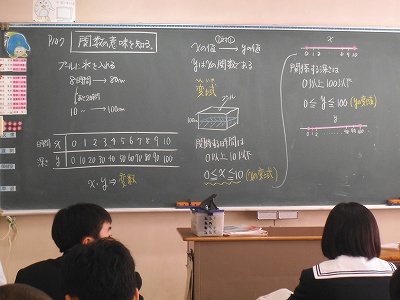 P.107 関数の意味を知る。
プールに水を入れる
8時間 → 80cm
10 〃 → 100cm
時間 x 0 1 2 3 4 5 6 7 8 9 10
深さ y 0 10 20 30 40 50 60 70 80 90 100
x, y ⇒ 変数
xの値 → yの値
yはxの関数である
変域
プール
関係する時間は
0以上10以下
0 ≦ x ≦ 10 (xの変域)
x
0 1 2 8 9 10
関係する深さは
0以上100以下
0 ≦ y ≦ 100 (yの変域)
y